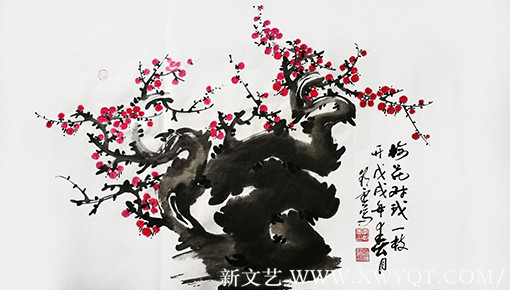 梅花对我一枝
开戊戌年春月
新文艺 WWW.XWYQT.COM/